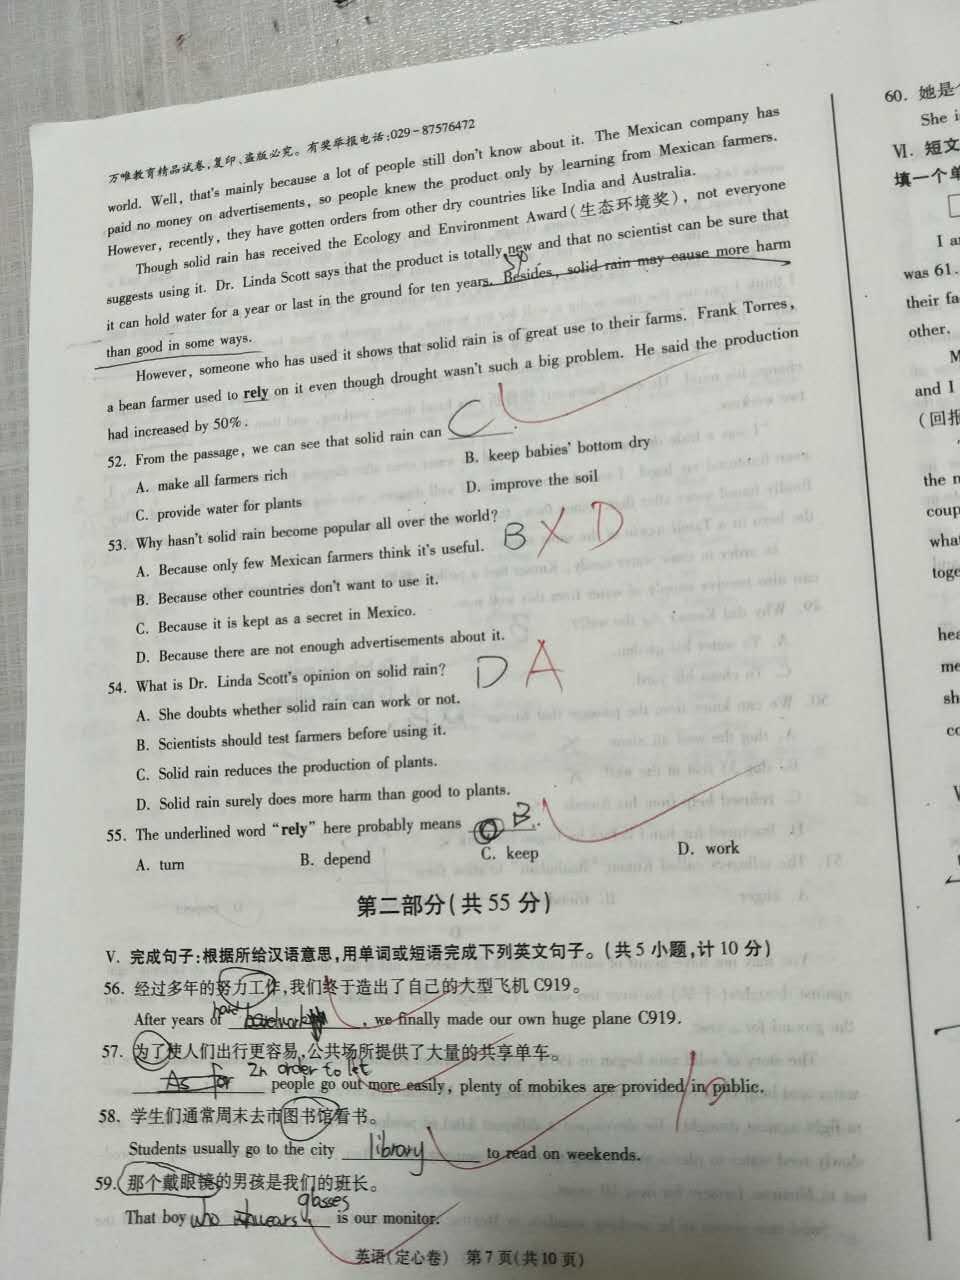 万唯教育精品试卷,复印、盗版必究。有奖举报电话:029-87576472
world. Well, that's mainly because a lot of people still don't know about it. The Mexican company has
paid no money on advertisements, so people knew the product only by learning from Mexican farmers.
However, recently, they have gotten orders from other dry countries like India and Australia.
Though solid rain has received the Ecology and Environment Award(生态环境奖), not everyone
suggests using it. Dr. Linda Scott says that the product is totally new and that no scientist can be sure that
it can hold water for a year or last in the ground for ten years. Besides, solid rain may cause more harm
than good in some ways.
However, someone who has used it shows that solid rain is of great use to their farms. Frank Torres,
a bean farmer used to rely on it even though drought wasn't such a big problem. He said the production
had increased by 50%.
52. From the passage, we can see that solid rain can C.
A. make all farmers rich
B. keep babies' bottom dry
C. provide water for plants
D. improve the soil
53. Why hasn't solid rain become popular all over the world? B D
A. Because only few Mexican farmers think it's useful.
B. Because other countries don't want to use it.
C. Because it is kept as a secret in Mexico.
D. Because there are not enough advertisements about it.
54. What is Dr. Linda Scott's opinion on solid rain? D A
A. She doubts whether solid rain can work or not.
B. Scientists should test farmers before using it.
C. Solid rain reduces the production of plants.
D. Solid rain surely does more harm than good to plants.
55. The underlined word "rely" here probably means B.
A. turn
B. depend
C. keep
D. work
第二部分(共55分)
V. 完成句子:根据所给汉语意思,用单词或短语完成下列英文句子。(共5小题,计10分)
56. 经过多年的努力工作,我们终于造出了自己的大型飞机C919。
After years of hard work, we finally made our own huge plane C919.
57. 为了使人们出行更容易,公共场所提供了大量的共享单车。
In order to let
As for people go out more easily, plenty of mobikes are provided in public.
58. 学生们通常周末去市图书馆看书。
Students usually go to the city library to read on weekends.
59. 那个戴眼镜的男孩是我们的班长。
That boy who wears glasses is our monitor.
英语(定心卷) 第7页(共10页)
60. 她是
She i
VI. 短文
填一个单
I a
was 61.
their fa
other.
M
and I
(回报
the n
coup
what
toge
hea
me
sh
co